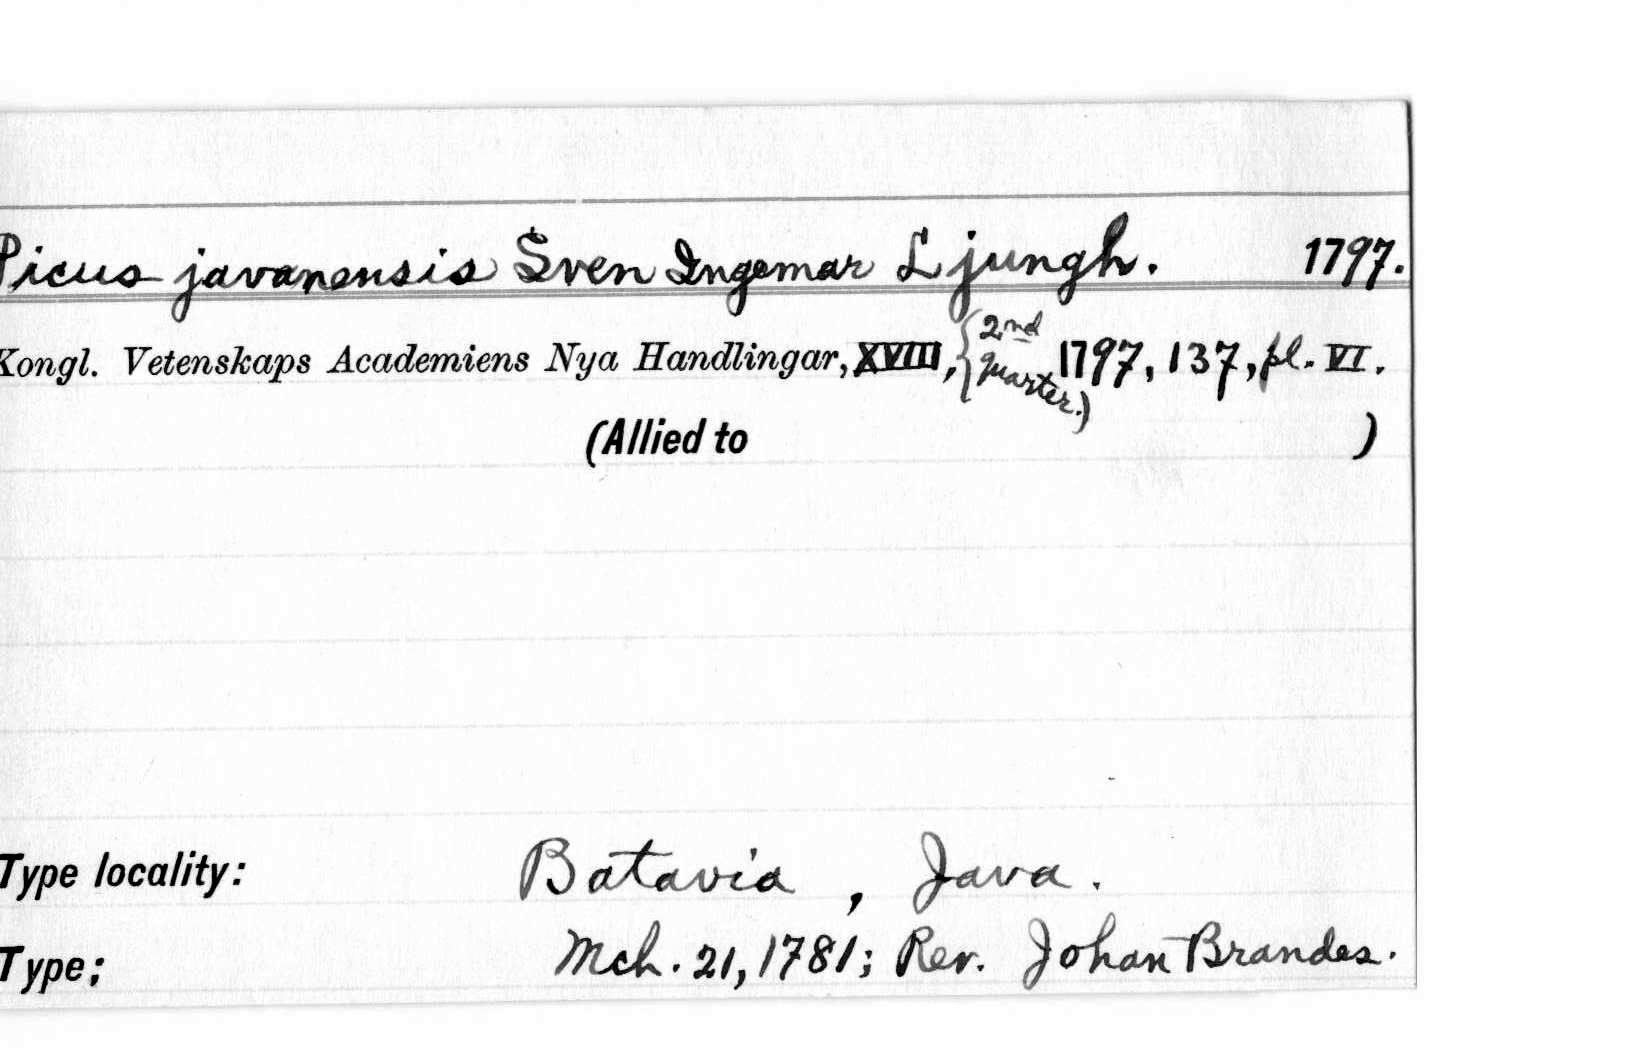 Picus javanensis Sven Ingemar Ljungh. 1797.
Kongl. Vetenskaps Academiens Nya Handlingar, XVIII, {2nd Quarter.) 1797, 137, pl. VI.
(Allied to )
Type locality: Batavia, Java.
Type; Mch. 21, 1781; Rev. Johan Brandes.